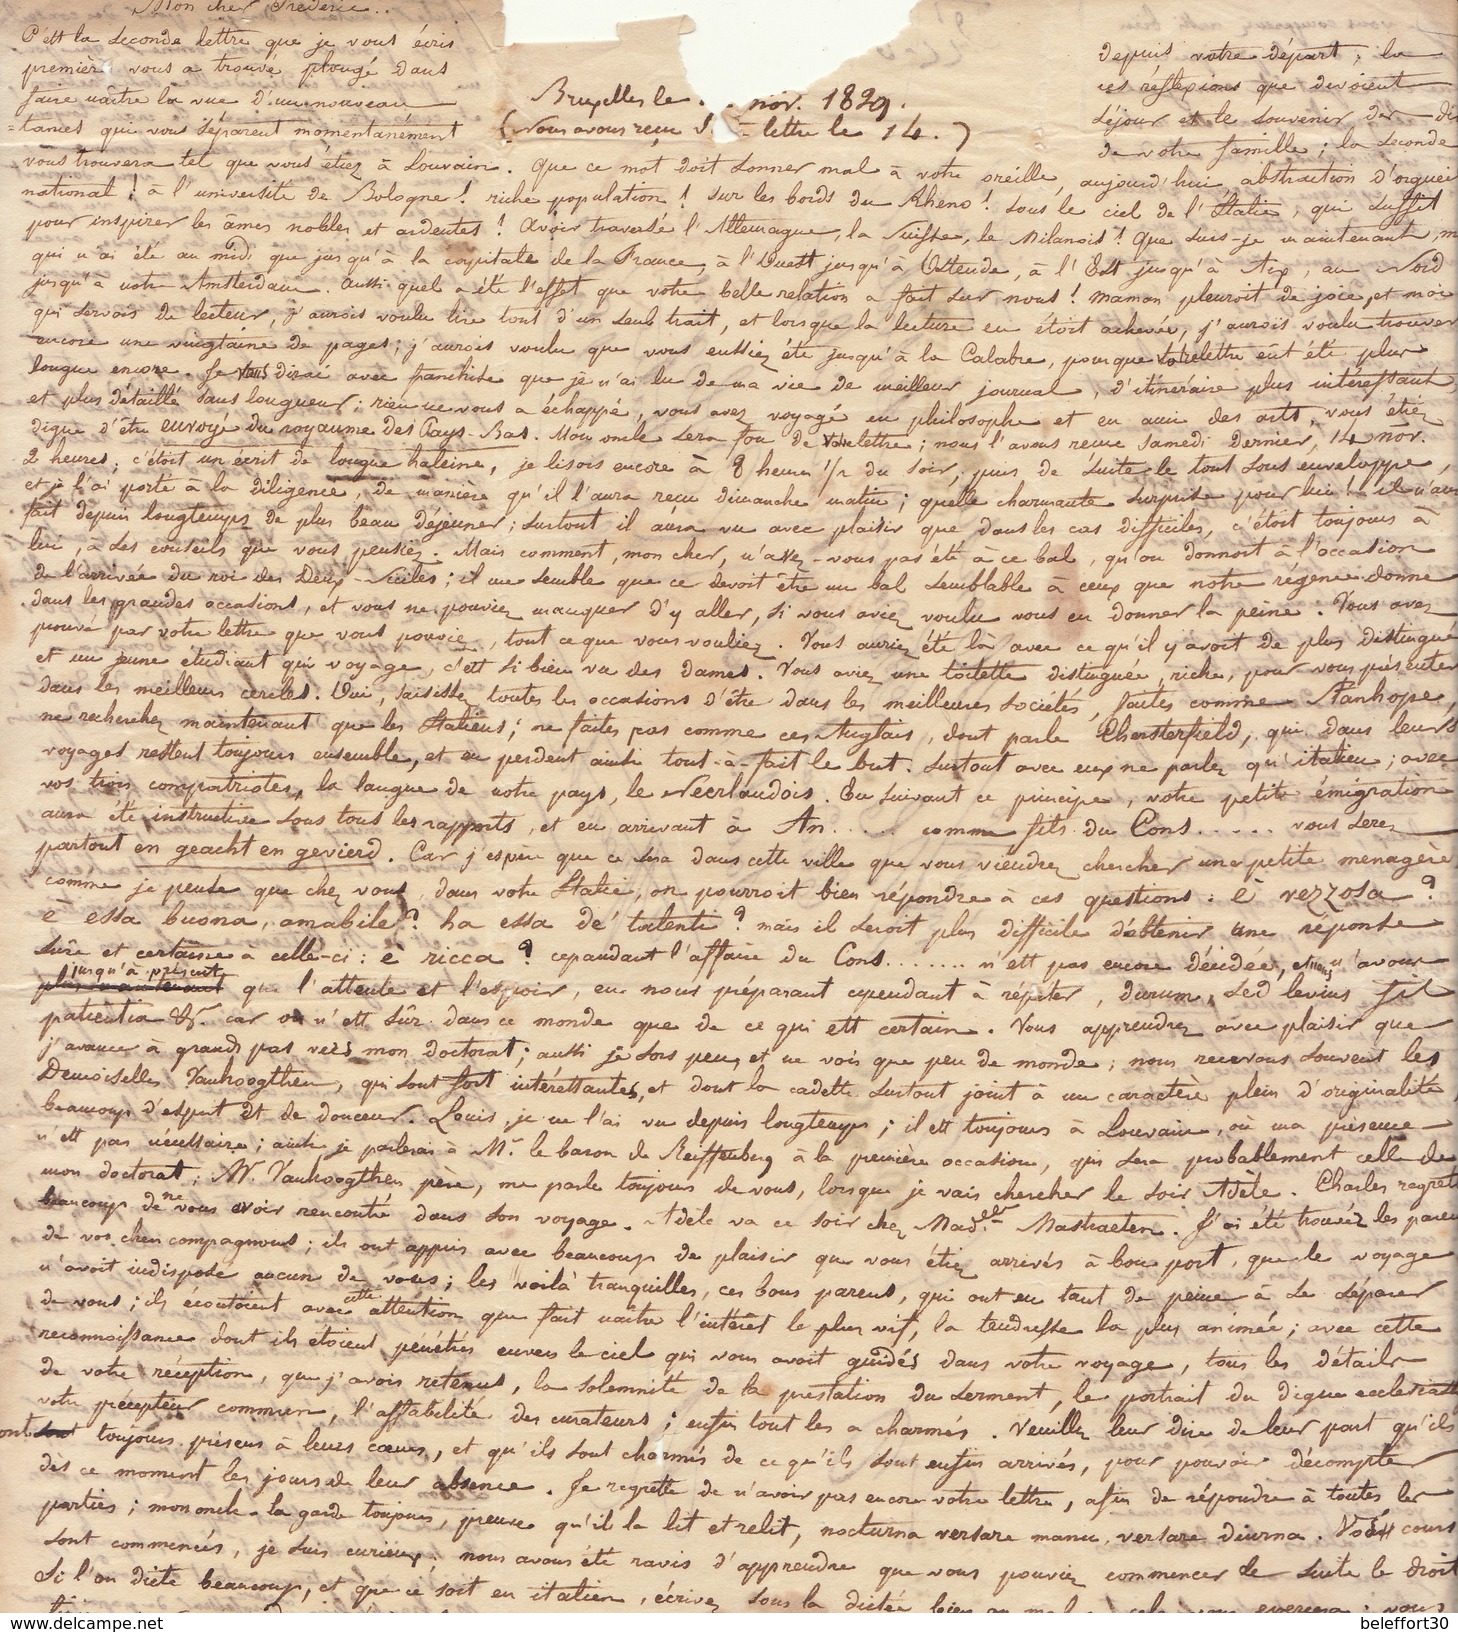 Mon cher Frédéric..
C'est la seconde lettre que je vous écris depuis votre départ ; la
première vous a trouvé plongé dans ces réflexions que devoient
faire naître la vue d'un nouveau séjour et le souvenir de
Bruxelles le nov. 1829.
=tances qui vous séparent momentanément de votre famille ; la seconde
(Nous avons reçu lettre le 14.)
vous trouvera tel que vous étiez à Louvain. Que ce mot doit sonner mal à votre oreille, aujourd'hui, abstraction d'orgueil
national ! à l'université de Bologne ! riche population ! sur les bords du Rheno ! sous le ciel de l'Italie, qui suffit
pour inspirer les âmes nobles et ardentes ! Avoir traversé l'Allemagne, la Suisse, le Milanois ! Que suis-je maintenant, m
qui n'ai été au midi que jusqu'à la capitale de la France, à l'Ouest jusqu'à Ostende, à l'Est jusqu'à Aix, au Nord
jusqu'à notre Amsterdam. Aussi quel a été l'effet que votre belle relation a fait sur nous ! Maman pleuroit de joie, et moi
qui servois de lecteur, j'aurois voulu lire tout d'un seul trait, et lorsque la lecture en étoit achevée, j'aurois voulu trouver
encore une vingtaine de pages ; j'aurois voulu que vous eussiez été jusqu'à la Calabre, pourque votre lettre eût été plus
longue encore. Je vous dirai avec franchise que je n'ai lu de ma vie de meilleur journal, d'itinéraire plus intéressant,
et plus détaillé sans longueur ; rien ne vous a échappé, vous avez voyagé en philosophe et en ami des arts, vous étiez
digne d'être envoyé du royaume des Pays-Bas. Mon oncle sera fou de votre lettre ; nous l'avons reçue samedi dernier, 14 nov.
2 heures ; c'étoit un écrit de longue haleine, je lisois encore à 8 heures 1/2 du soir, puis de suite le tout sous enveloppe,
et je l'ai porté à la diligence, de manière qu'il l'aura reçu dimanche matin ; quelle charmante surprise pour lui ! il n'aura
fait depuis longtemps de plus beau déjeuner ; surtout il aura vu avec plaisir que dans les cas difficiles, c'étoit toujours à
lui, à ses conseils que vous pensiez. Mais comment, mon cher, n'avez-vous pas été à ce bal, qu'on donnoit à l'occasion
de l'arrivée du roi des Deux-Siciles ; il me semble que ce devoit être un bal semblable à ceux que notre régence donne
dans les grandes occasions, et vous ne pouviez manquer d'y aller, si vous aviez voulu vous en donner la peine. Vous avez
prouvé par votre lettre que vous pouviez, tout ce que vous vouliez. Vous auriez été là avec ce qu'il y avoit de plus distingué
et un jeune étudiant qui voyage, c'est si bien vu des dames. Vous aviez une toilette distinguée, riche, pour vous présenter
dans les meilleurs cercles. Oui, saisissez toutes les occasions d'être dans les meilleures sociétés, faites comme Stanhope,
ne recherchez maintenant que les Italiens ; ne faites pas comme ces Anglais, dont parle Chersterfield, qui dans leurs
voyages restent toujours ensemble, et en perdent ainsi tout-à-fait le but. Surtout avec eux ne parlez qu'italien ; avec
vos trois compatriotes, la langue de notre pays, le Neerlandois. En suivant ce principe, votre petite émigration
aura été instructive sous tous les rapports, et en arrivant à An..... comme fils du Cons..... vous serez
partout en geacht en gevierd. Car j'espère que ce sera dans cette ville que vous viendrez chercher une petite menagère
comme je pense que chez vous, dans votre Italie, on pourroit bien répondre à ces questions : è vezzosa ?
è essa buona, amabile ? ha essa de' talenti ? mais il seroit plus difficile d'obtenir une réponse
sûre et certaine à celle-ci : è ricca ? cependant l'affaire du Cons....... n'est pas encore décidée, et nous n'avons
jusqu'à présent
que l'attente et l'espoir, en nous préparant cependant à répéter, durum, sed levius fit
patientia &. car on n'est sûr dans ce monde que de ce qui est certain. Vous apprendrez avec plaisir que
j'avance à grands pas vers mon doctorat ; aussi je sors peu, et ne vois que peu de monde ; nous recevons souvent les
Demoiselles Vanhoogthen, qui sont fort intéressantes, et dont la cadette surtout joint à un caractère plein d'originalité,
beaucoup d'esprit et de douceur. Louis, je ne l'ai vu depuis longtemps ; il est toujours à Louvain, où ma présence
n'est pas nécessaire ; ainsi je parlerai à Mr. le baron de Reiffenberg à la première occasion, qui sera probablement celle de
mon doctorat ; Mr. Vanhoogthen père, me parle toujours de vous, lorsque je vais chercher le soir Adèle. Charles regrette
beaucoup de ne vous avoir rencontré dans son voyage. Adèle va ce soir chez Madelle Mastraeten. J'ai été trouvez les parens
de vos chers compagnons ; ils ont appris avec beaucoup de plaisir que vous étiez arrivés à bon port, que le voyage
n'avoit indisposé aucun de vous ; les voilà tranquilles, ces bons parens, qui ont eu tant de peine à se séparer
de vous ; ils écoutoient avec cette attention que fait naître l'intérêt le plus vif, la tendresse la plus animée ; avec cette
reconnoissance dont ils étoient pénétrés envers le ciel qui vous avoit guidés dans votre voyage, tous les détails
de votre réception, que j'avois retenus, la solemnité de la prestation du serment, le portrait du digne ecclésiasti
votre précepteur commun, l'affabilité des curateurs ; enfin tout les a charmés. Veuillez leur dire de leur part qu'ils
ont toujours présens à leurs cœurs, et qu'ils sont charmés de ce qu'ils sont enfin arrivés, pour pouvoir décompter
dès ce moment les jours de leur absence. Je regrette de n'avoir pas encore votre lettre, afin de répondre à toutes les
parties ; mon oncle la garde toujours, preuve qu'il la lit et relit, nocturna versare manu, versare diurna. Vos cours
sont commencés, je suis curieux ; nous avons été ravis d'apprendre que vous pouviez commencer de suite le droit
Si l'on dicte beaucoup, et que ce soit en italien, écrivez sous la dictée bien ou mal, cela vous exercera ; vous
© delcampe.net
beleffort30